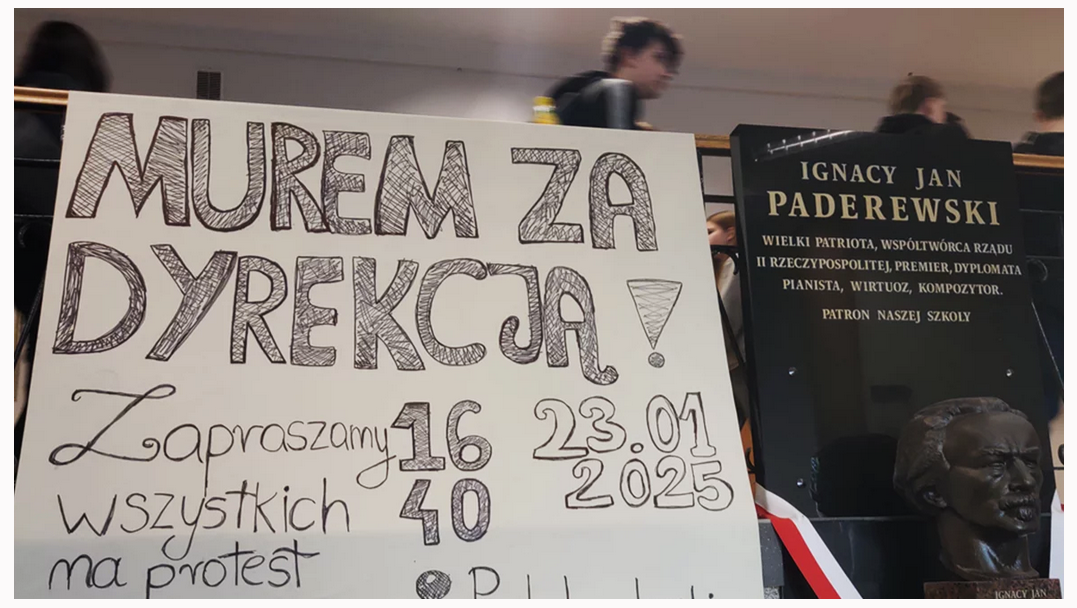 MUREM ZA
DYREKCJĄ!
Zapraszamy 16 23.01
wszystkich 40 2025
na protest
IGNACY JAN
PADEREWSKI
WIELKI PATRIOTA, WSPÓŁTWÓRCA RZĄDU
II RZECZYPOSPOLITEJ, PREMIER, DYPLOMATA
PIANISTA, WIRTUOZ, KOMPOZYTOR.
PATRON NASZEJ SZKOŁY
IGNACY JAN